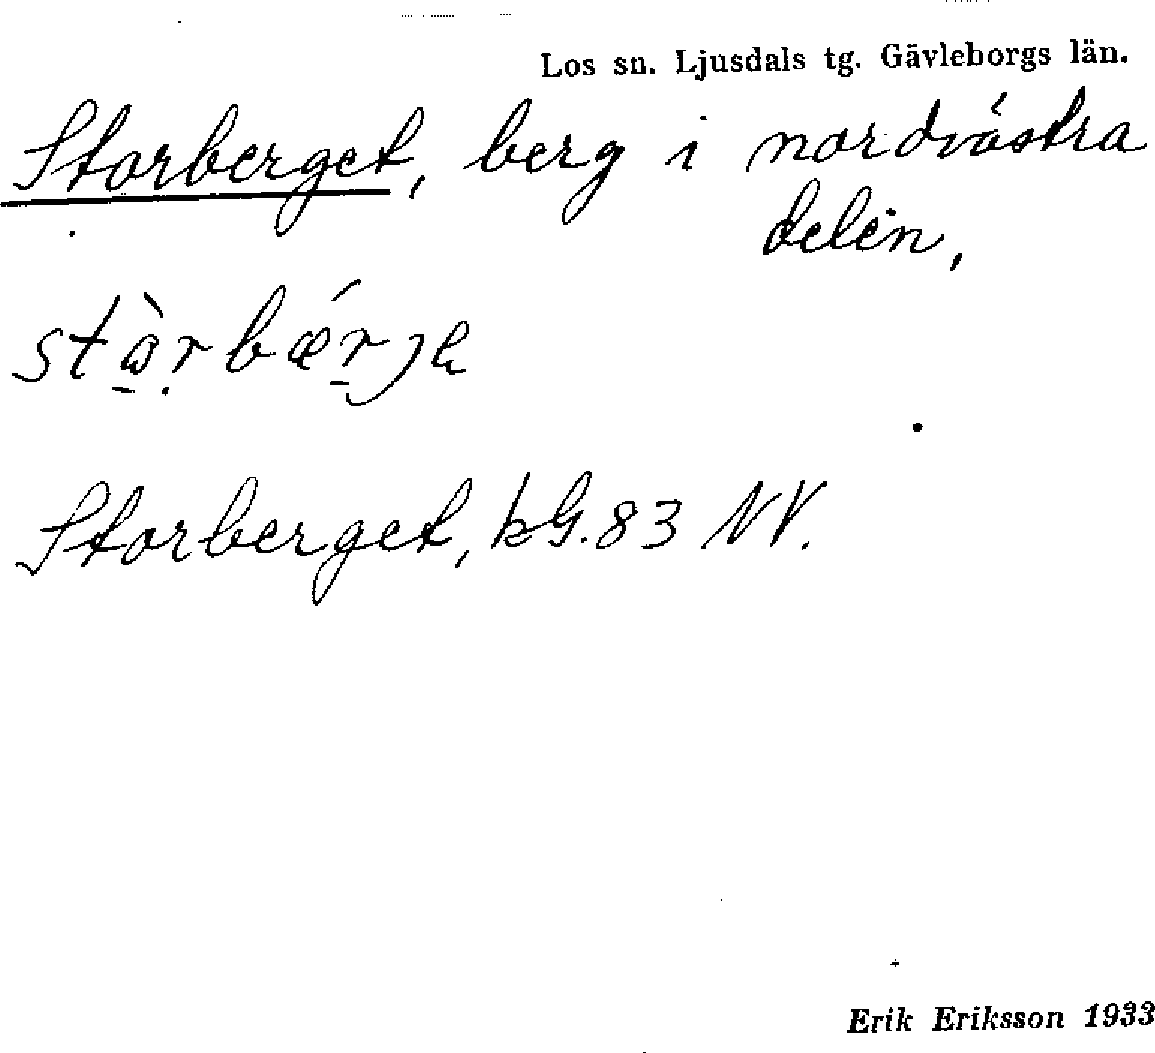 Los sn. Ljusdals tg. Gävleborgs län.
Storberget, berg i nordvästra
delen,
Storberget, kG. 83 NV.
Erik Eriksson 1933